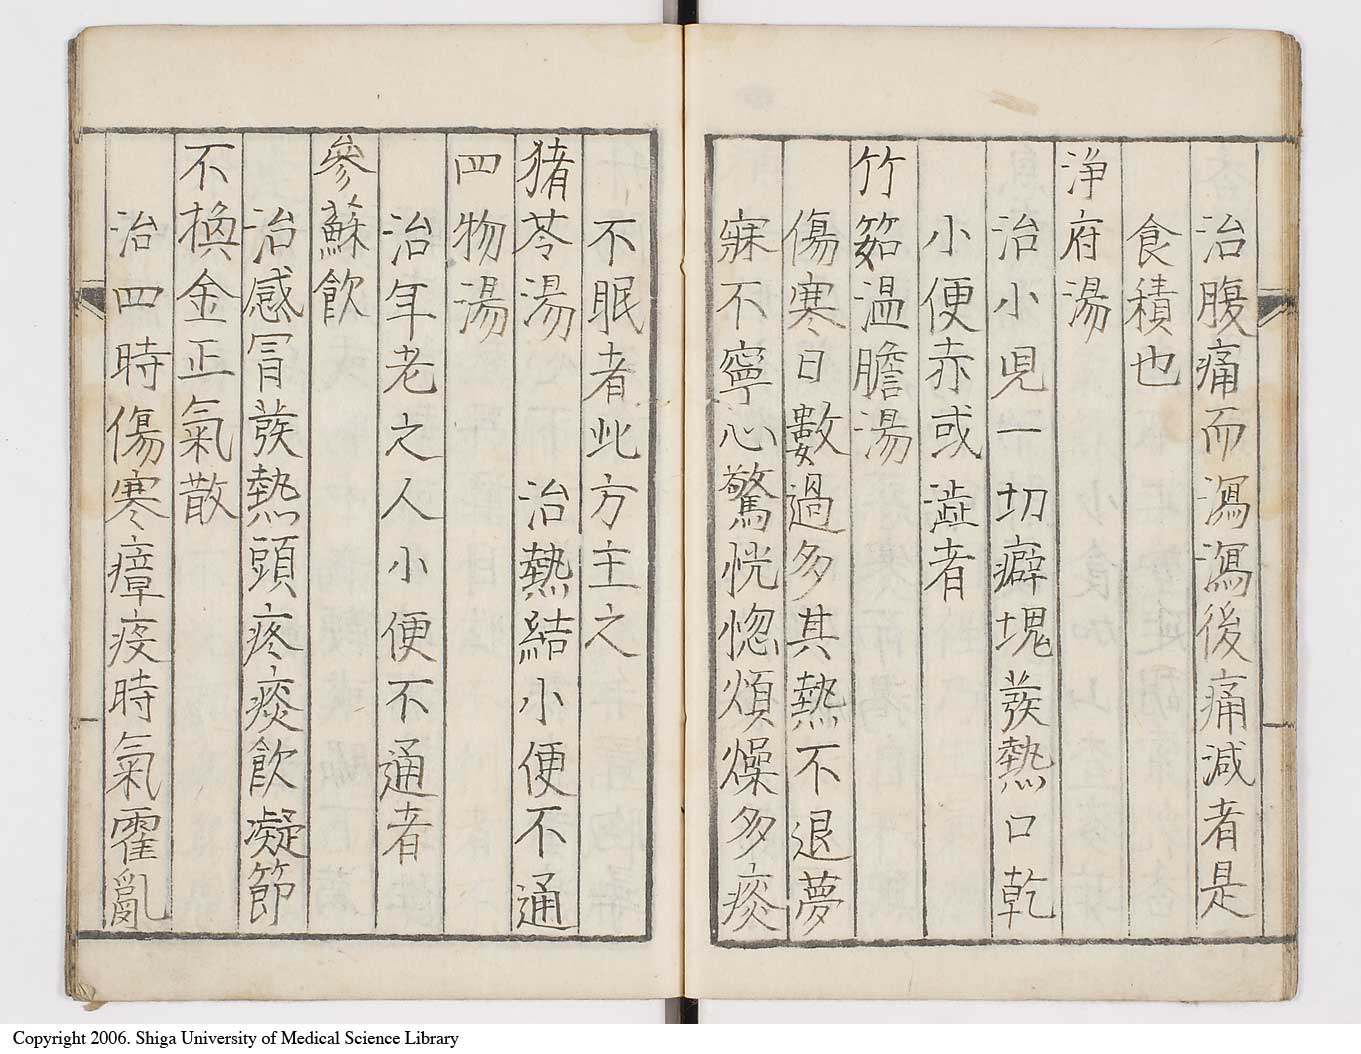 治腹痛而瀉瀉後痛減者是
食積也
浄府湯
治小児一切癖塊發熱口乾
小便赤或澁者
竹筎温膽湯
傷寒日數過多其熱不退夢
寐不寧心驚恍惚煩燥多痰
不眠者此方主之
猪苓湯 治熱結小便不通
四物湯
治年老之人小便不通者
參蘇飲
治感冒發熱頭疼痰飲凝節
不換金正氣散
治四時傷寒瘴疫時氣霍亂
Copyright 2006. Shiga University of Medical Science Library